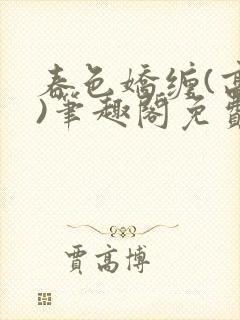 春色娇缠(高
)筆趣閣免費
賈高博